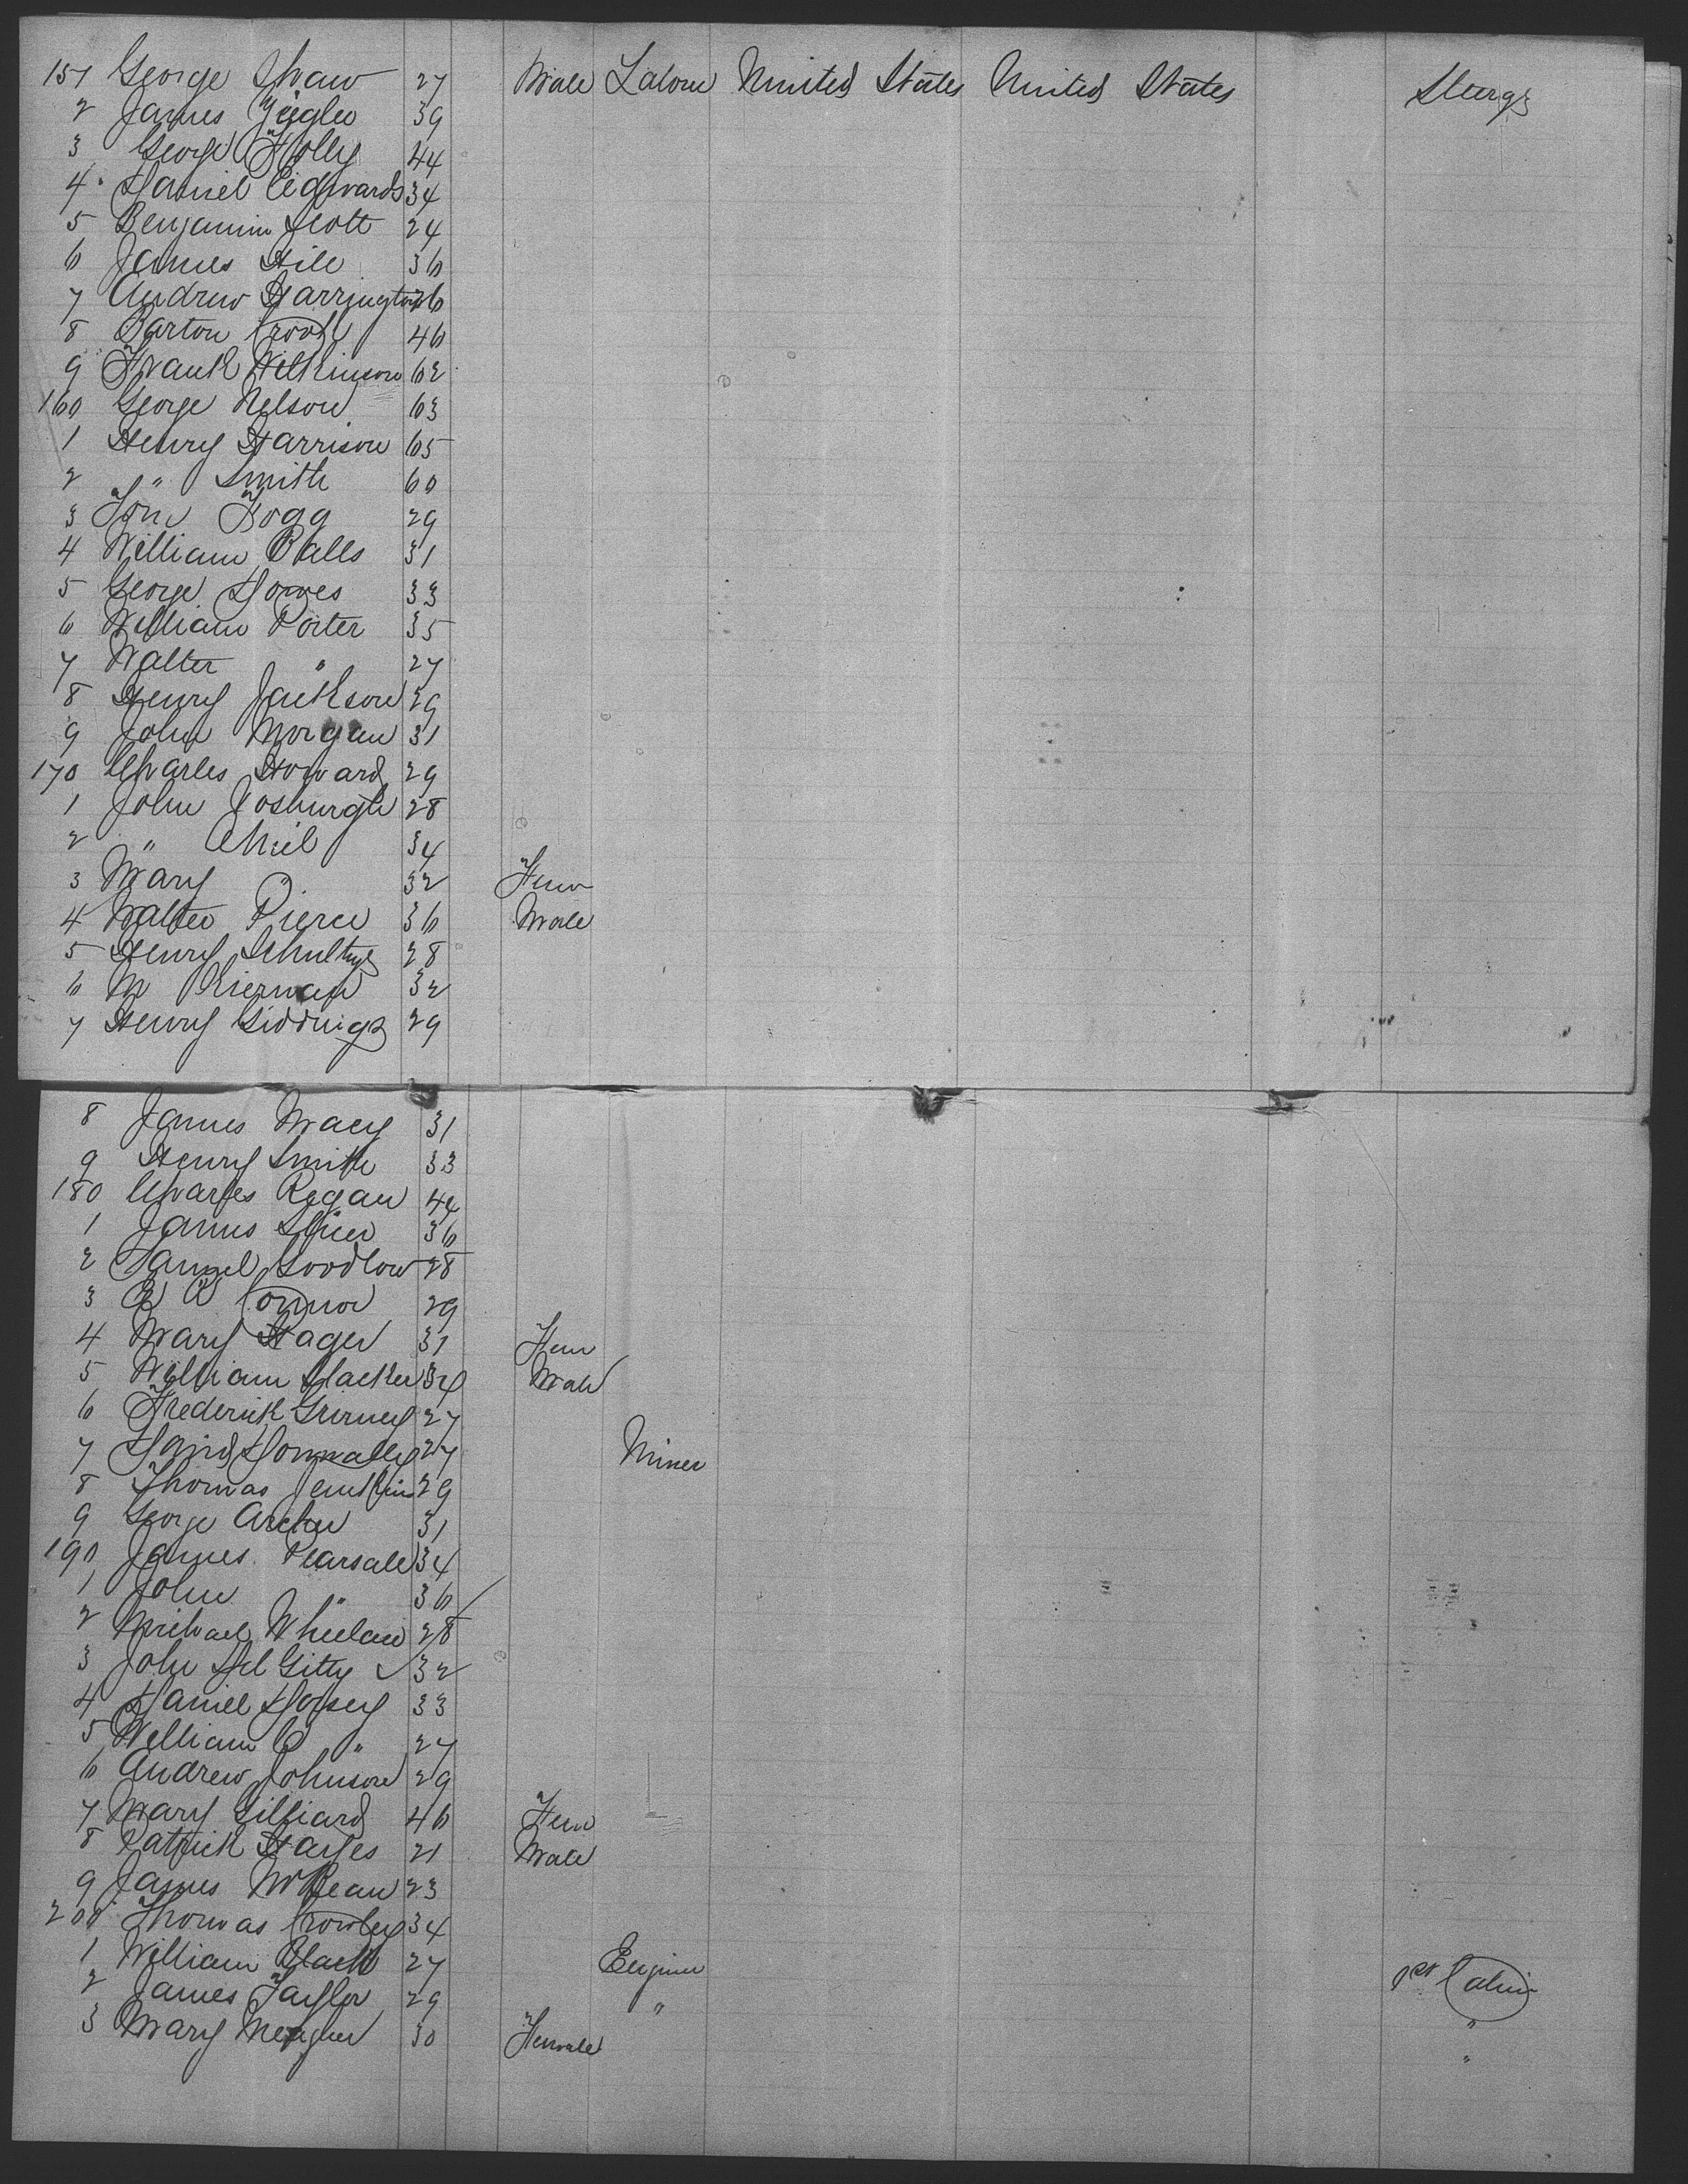 151 George Shaw 27 Male Labour United States United States Steerge
2 James 39
3 George Holly 44
4 Daniel Edwards 34
5 Benjamin Scott 24
6 James Hill 36
7 Andrew Harrington 26
8 Barton Crook 46
9 Frank Wilkinson 62
160 George Nelson 63
1 Henry Harrison 65
2 " Smith 60
3 Tom Fogg 29
4 William Balls 31
5 George 33
6 William Porter 35
7 Walter " 27
8 Henry Jackson 29
9 John Morgan 31
170 Charles Howard 29
1 John 28
2 " 34
3 Mary " 32 Fem
4 Walter Pierce 36 Male
5 Henry Schultze 28
6 M Kiernan 32
7 Henry Giddings 29
8 James Macy 31
9 Henry Smith 33
180 Charles Regan 44
1 James 36
2 Samuel Goodlow 28
3 Connor 29
4 Mary Hager 31 Fem
5 William Slacker 34 Male
6 Frederick 27
7 David Donnally 27 Miner
8 Thomas Jenkins 29
9 George Archer 31
190 James Pearsall 34
1 John " 36
2 Michael Whelan 28
3 John 32
4 Daniel Dorsey 33
5 William C " 27
6 Andrew Johnson 29
7 Mary Gilliard 46 Fem
8 Patrick Hayes 21 Male
9 James McKean 23
200 Thomas Crowley 34
1 William Black 27 Engineer 1st Cabin
2 James Taylor 29 " "
3 Mary Meagher 30 Female "